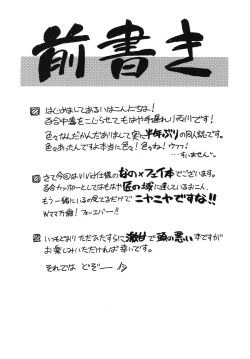 前書き
はじめましてあるいはこんにちは！
百合中毒をこじらせてもはや手遅れ！石川です！
色々なんだかんだありまして実に半年ぶりの同人誌です。
色々あったんですよ本当に色々！色々ね！ウフフ！
…すいません。
さて今回はViVid仕様のなの×フェイ本でございます。
百合カップルとしてはもはや匠の域に達しているお二人、
もう一緒にいるの見てるだけでニヤニヤですな!!
Wママ万歳！フォーエバー!!
いつもどおりただひたすらに激甘で頭の悪い本ですが
お楽しみいただければ幸いです。
それでは どぞー